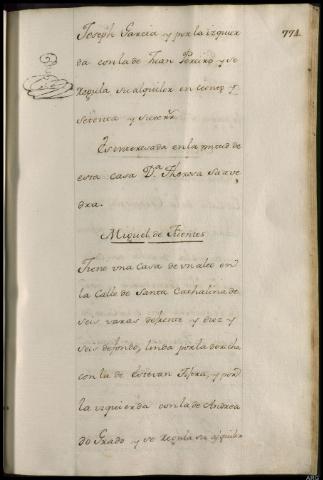 774
Joseph Garcia y por la izquier
da con la de Juan Pereiro, y se
regula su alquiler en ciento y
settenta y siete rr.
Es interesada en la mitad de
esta casa D.ª Theresa Suave
dra.
Miguel de Fuentes
Tiene vna casa de vn alto en
la Calle de Santa Cathalina de
seis varas de frente y diez y
seis de fondo, linda por la derecha
con la de Estevan, y por
la izquierda con la de Andrea
do Grado y se regula su alquiler